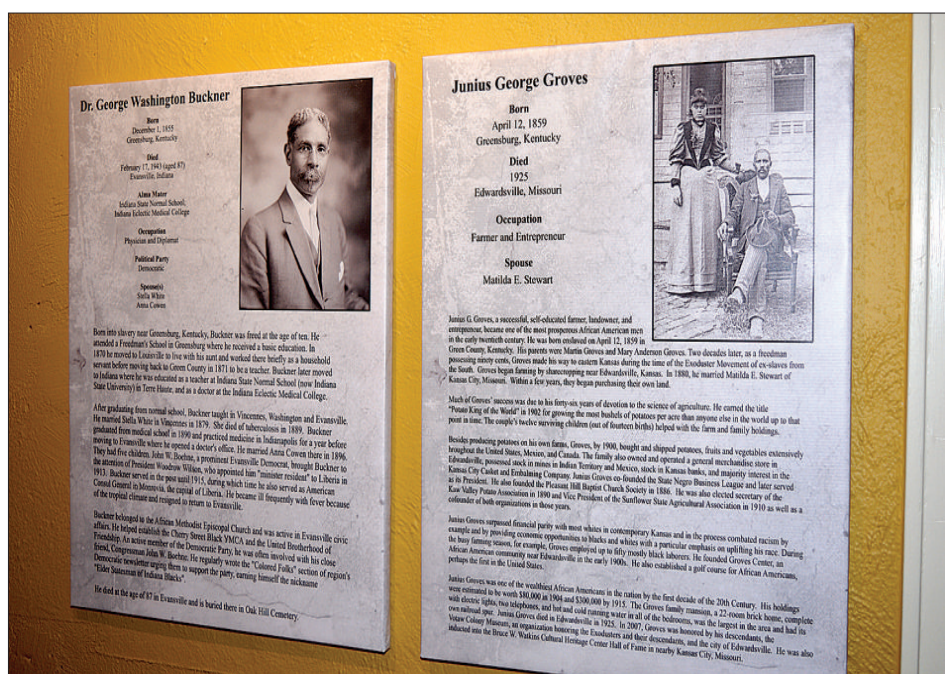 Dr. George Washington Buckner
Born
December 1, 1855
Greensburg, Kentucky
Died
February 17, 1943 (aged 87)
Evansville, Indiana
Alma Mater
Indiana State Normal School;
Indiana Eclectic Medical College
Occupation
Physician and Diplomat
Political Party
Democratic
Spouse(s)
Stella White
Anna Cowen
Born into slavery near Greensburg, Kentucky, Buckner was freed at the age of ten. He
attended a Freedman's School in Greensburg where he received a basic education. In
1870 he moved to Louisville to live with his aunt and worked there briefly as a household
servant before moving back to Green County in 1871 to be a teacher. Buckner later moved
to Indiana where he was educated as a teacher at Indiana State Normal School (now Indiana
State University) in Terre Haute, and as a doctor at the Indiana Eclectic Medical College.
After graduating from normal school, Buckner taught in Vincennes, Washington and Evansville.
He married Stella White in Vincennes in 1879. She died of tuberculosis in 1889. Buckner
graduated from medical school in 1890 and practiced medicine in Indianapolis for a year before
moving to Evansville where he opened a doctor's office. He married Anna Cowen there in 1896.
They had five children. John W. Boehne, a prominent Evansville Democrat, brought Buckner to
the attention of President Woodrow Wilson, who appointed him "minister resident" to Liberia in
1913. Buckner served in the post until 1915, during which time he also served as American
Consul General in Monrovia, the capital of Liberia. He became ill frequently with fever because
of the tropical climate and resigned to return to Evansville.
Buckner belonged to the African Methodist Episcopal Church and was active in Evansville civic
affairs. He helped establish the Cherry Street Black YMCA and the United Brotherhood of
Friendship. An active member of the Democratic Party, he was often involved with his close
friend, Congressman John W. Boehne. He regularly wrote the "Colored Folks" section of region's
Democratic newsletter urging them to support the party, earning himself the nickname
"Elder Statesman of Indiana Blacks".
He died at the age of 87 in Evansville and is buried there in Oak Hill Cemetery.
Junius George Groves
Born
April 12, 1859
Greensburg, Kentucky
Died
1925
Edwardsville, Missouri
Occupation
Farmer and Entrepreneur
Spouse
Matilda E. Stewart
Junius G. Groves, a successful, self-educated farmer, landowner, and
entrepreneur, became one of the most prosperous African American men
in the early twentieth century. He was born enslaved on April 12, 1859 in
Green County, Kentucky. His parents were Martin Groves and Mary Anderson Groves. Two decades later, as a freedman
possessing ninety cents, Groves made his way to eastern Kansas during the time of the Exoduster Movement of ex-slaves from
the South. Groves began farming by sharecropping near Edwardsville, Kansas. In 1880, he married Matilda E. Stewart of
Kansas City, Missouri. Within a few years, they began purchasing their own land.
Much of Groves' success was due to his forty-six years of devotion to the science of agriculture. He earned the title
"Potato King of the World" in 1902 for growing the most bushels of potatoes per acre than anyone else in the world up to that
point in time. The couple's twelve surviving children (out of fourteen births) helped with the farm and family holdings.
Besides producing potatoes on his own farms, Groves, by 1900, bought and shipped potatoes, fruits and vegetables extensively
throughout the United States, Mexico, and Canada. The family also owned and operated a general merchandise store in
Edwardsville, possessed stock in mines in Indian Territory and Mexico, stock in Kansas banks, and majority interest in the
Kansas City Casket and Embalming Company. Junius Groves co-founded the State Negro Business League and later served
as its President. He also founded the Pleasant Hill Baptist Church Society in 1886. He was also elected secretary of the
Kaw Valley Potato Association in 1890 and Vice President of the Sunflower State Agricultural Association in 1910 as well as a
cofounder of both organizations in those years.
Junius Groves surpassed financial parity with most whites in contemporary Kansas and in the process combated racism by
example and by providing economic opportunities to blacks and whites with a particular emphasis on uplifting his race. During
the busy farming season, for example, Groves employed up to fifty mostly black laborers. He founded Groves Center, an
African American community near Edwardsville in the early 1900s. He also established a golf course for African Americans,
perhaps the first in the United States.
Junius Groves was one of the wealthiest African Americans in the nation by the first decade of the 20th Century. His holdings
were estimated to be worth $80,000 in 1904 and $300,000 by 1915. The Groves family mansion, a 22-room brick home, complete
with electric lights, two telephones, and hot and cold running water in all of the bedrooms, was the largest in the area and had its
own railroad spur. Junius Groves died in Edwardsville in 1925. In 2007, Groves was honored by his descendants, the
Votaw Colony Museum, an organization honoring the Exodusters and their descendants, and the city of Edwardsville. He was also
inducted into the Bruce W. Watkins Cultural Heritage Center Hall of Fame in nearby Kansas City, Missouri.